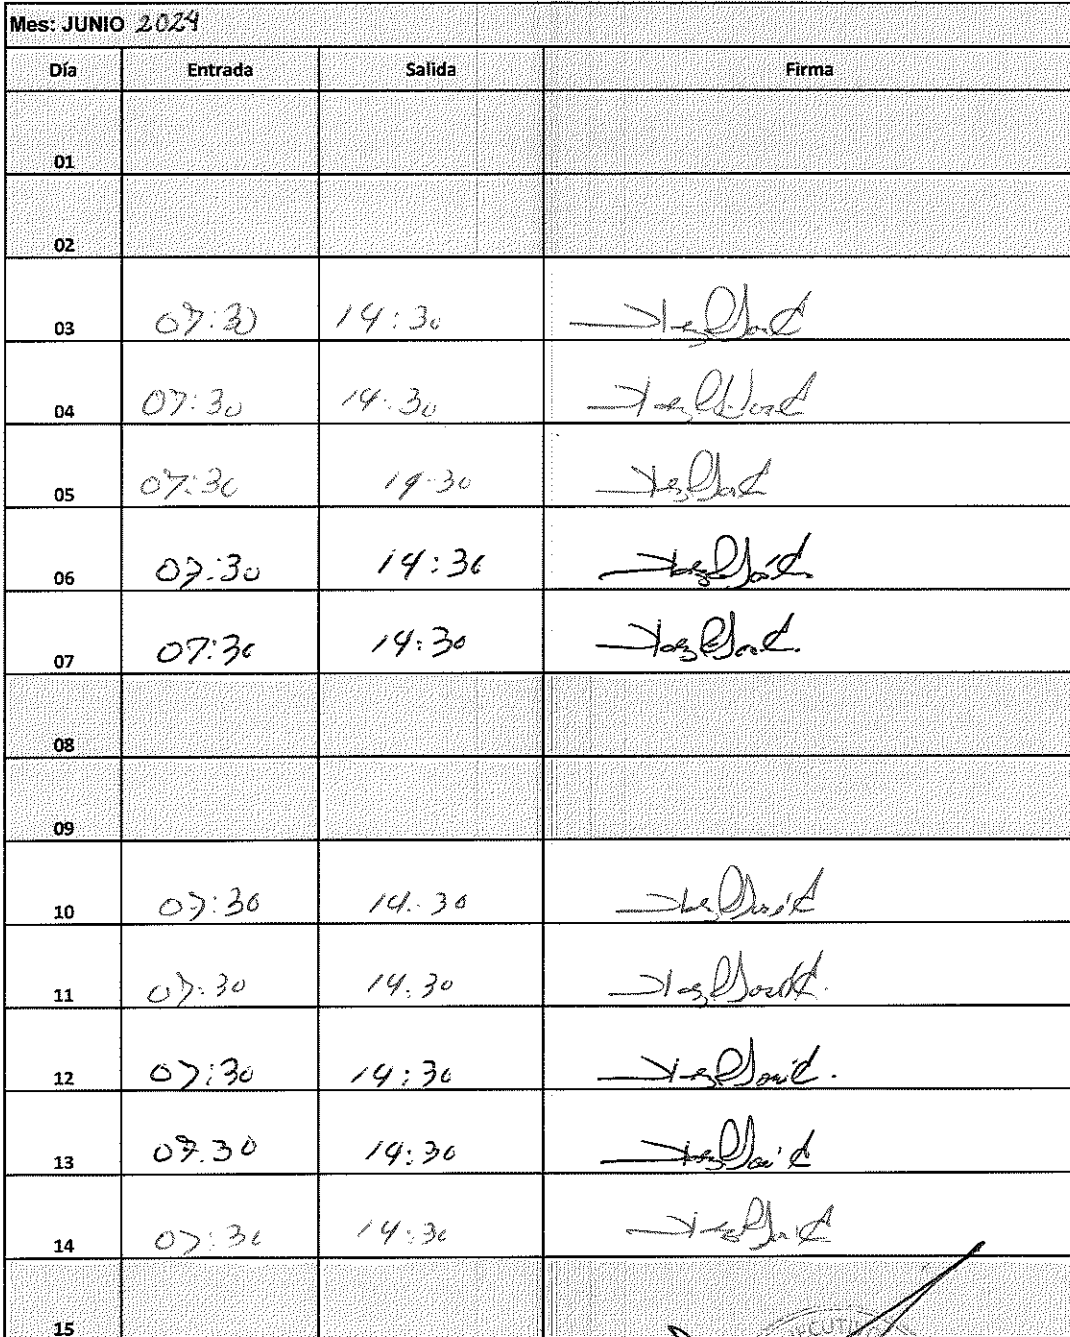 Mes: JUNIO 2024
Día Entrada Salida Firma
01
02
03 07:30 14:30
04 07:30 14:30
05 07:30 14:30
06 07:30 14:30
07 07:30 14:30
08
09
10 07:30 14:30
11 07:30 14:30
12 07:30 14:30
13 07.30 14:30
14 07:30 14:30
15